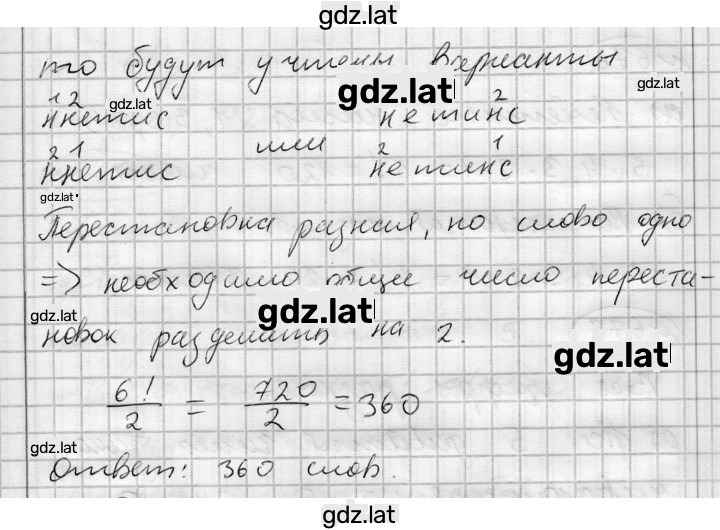 gdz.lat
то будут учтены варианты
gdz.lat
gdz.lat
gdz.lat
1 2 2
ннетис нетинс
2 1 или 2 1
ннетис нетинс
gdz.lat
Перестановка разная, но слово одно
=> необходимо общее число переста-
gdz.lat
gdz.lat
новок разделить на 2.
gdz.lat
6!/2 = 720/2 = 360
gdz.lat
Ответ: 360 слов.
gdz.lat